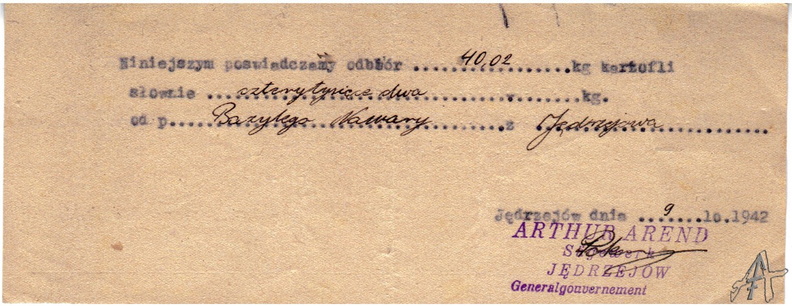 Niniejszym poświadczamy odbiór ....40,02.... kg kartofli
słownie ...czterytysiące dwa........ kg.
od p....Bazylego Nawary........z Jędrzejowa
Jędrzejów dnia ....9....10.1942
ARTHUR AREND
JĘDRZEJÓW
Generalgouvernement